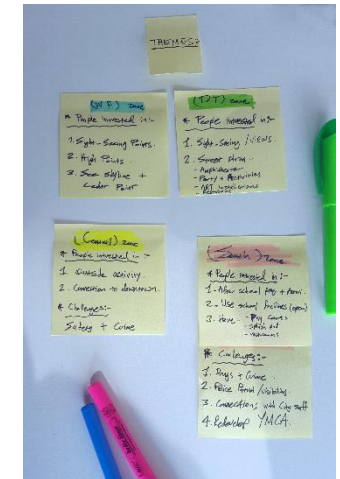 THEMES:
(WF) zone
* People interested in:-
1. Sight-Seeing Points.
2. High Points.
3. See skyline +
Cedar Point
(DT) zone
* People interested in:-
1. Sight-seeing / views.
2. Street
- Amphitheater
- Party + Activities
- ART installations
(Central) zone
* People interested in :-
1. Outside activity.
2. Connection to downtown.
* Challenges:-
Safety + Crime
(South) zone
* People interested in :-
1. After school
2. Use school facilities (open)
3. Have
* Challenges:-
1. Drugs + Crime.
2. Police Patrol / visibility.
3. Connections with City staff
4. Redevelop YMCA.